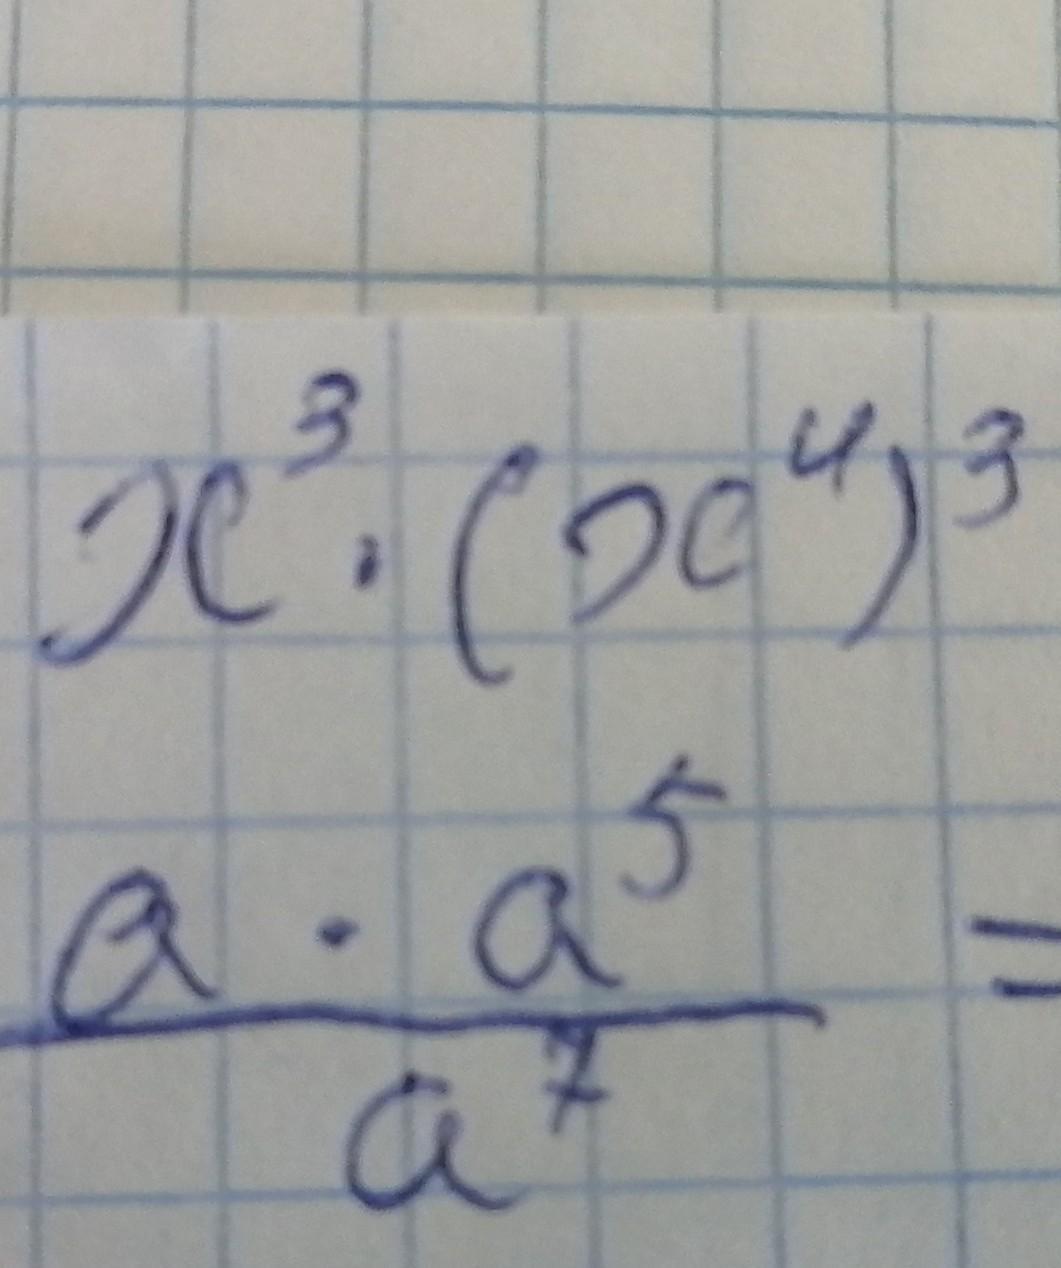 x³ · (x⁴)³
a · a⁵ =
a⁷